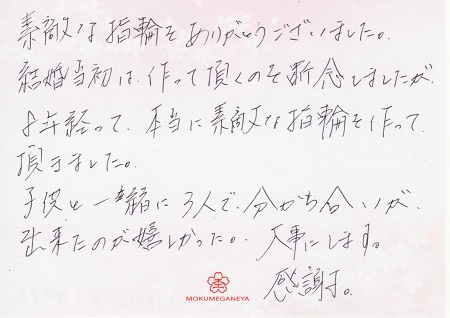 素敵な指輪をありがとうございました。
結婚当初は、作って頂くのを断念しましたが、
8年経って、本当に素敵な指輪を作って
頂きました。
子供と一緒に3人で、分かち合いが、
出来たのが嬉しかった。大事にします。
感謝。
MOKUMEGANEYA